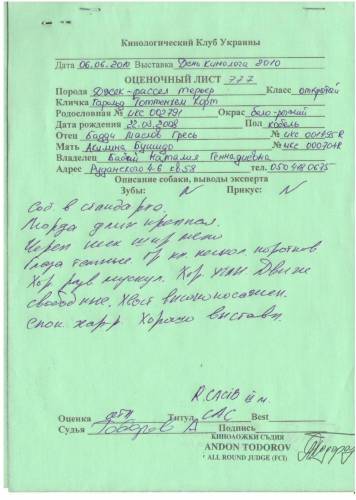 Кинологический Клуб Украины
Дата 06.06.2010 Выставка День Кинолога 2010
ОЦЕНОЧНЫЙ ЛИСТ 777
Порода Джек-рассел терьер Класс открытый
Кличка Гарольд Тоттенхем Корт
Родословная № UKC 002791 Окрас бело-рыжий
Дата рождения 22.03.2008 Пол кобель
Отец Бадди № UKC
Мать Акилина Бушидо № UKC 000704R
Владелец Бабий Наталия Геннадиевна
Адрес 4-6 кв 58 тел. 050 419 0675
Описание собаки, выводы эксперта
Зубы: N Прикус: N
Соб в стандарте.
Морда длин
Череп
Глаза темные. Гр кл коротков
Хор разв мускул. Хор Движе
свободные. Хвост высокопосажен.
Спок. хар Хорошо выставл.
R.CACIB
Оценка отл Титул САС Best
Судья Тодоров А Подпись
КИНОЛОЖКИ СЪДИЯ
ANDON TODOROV
ALL ROUND JUDGE (FCI)